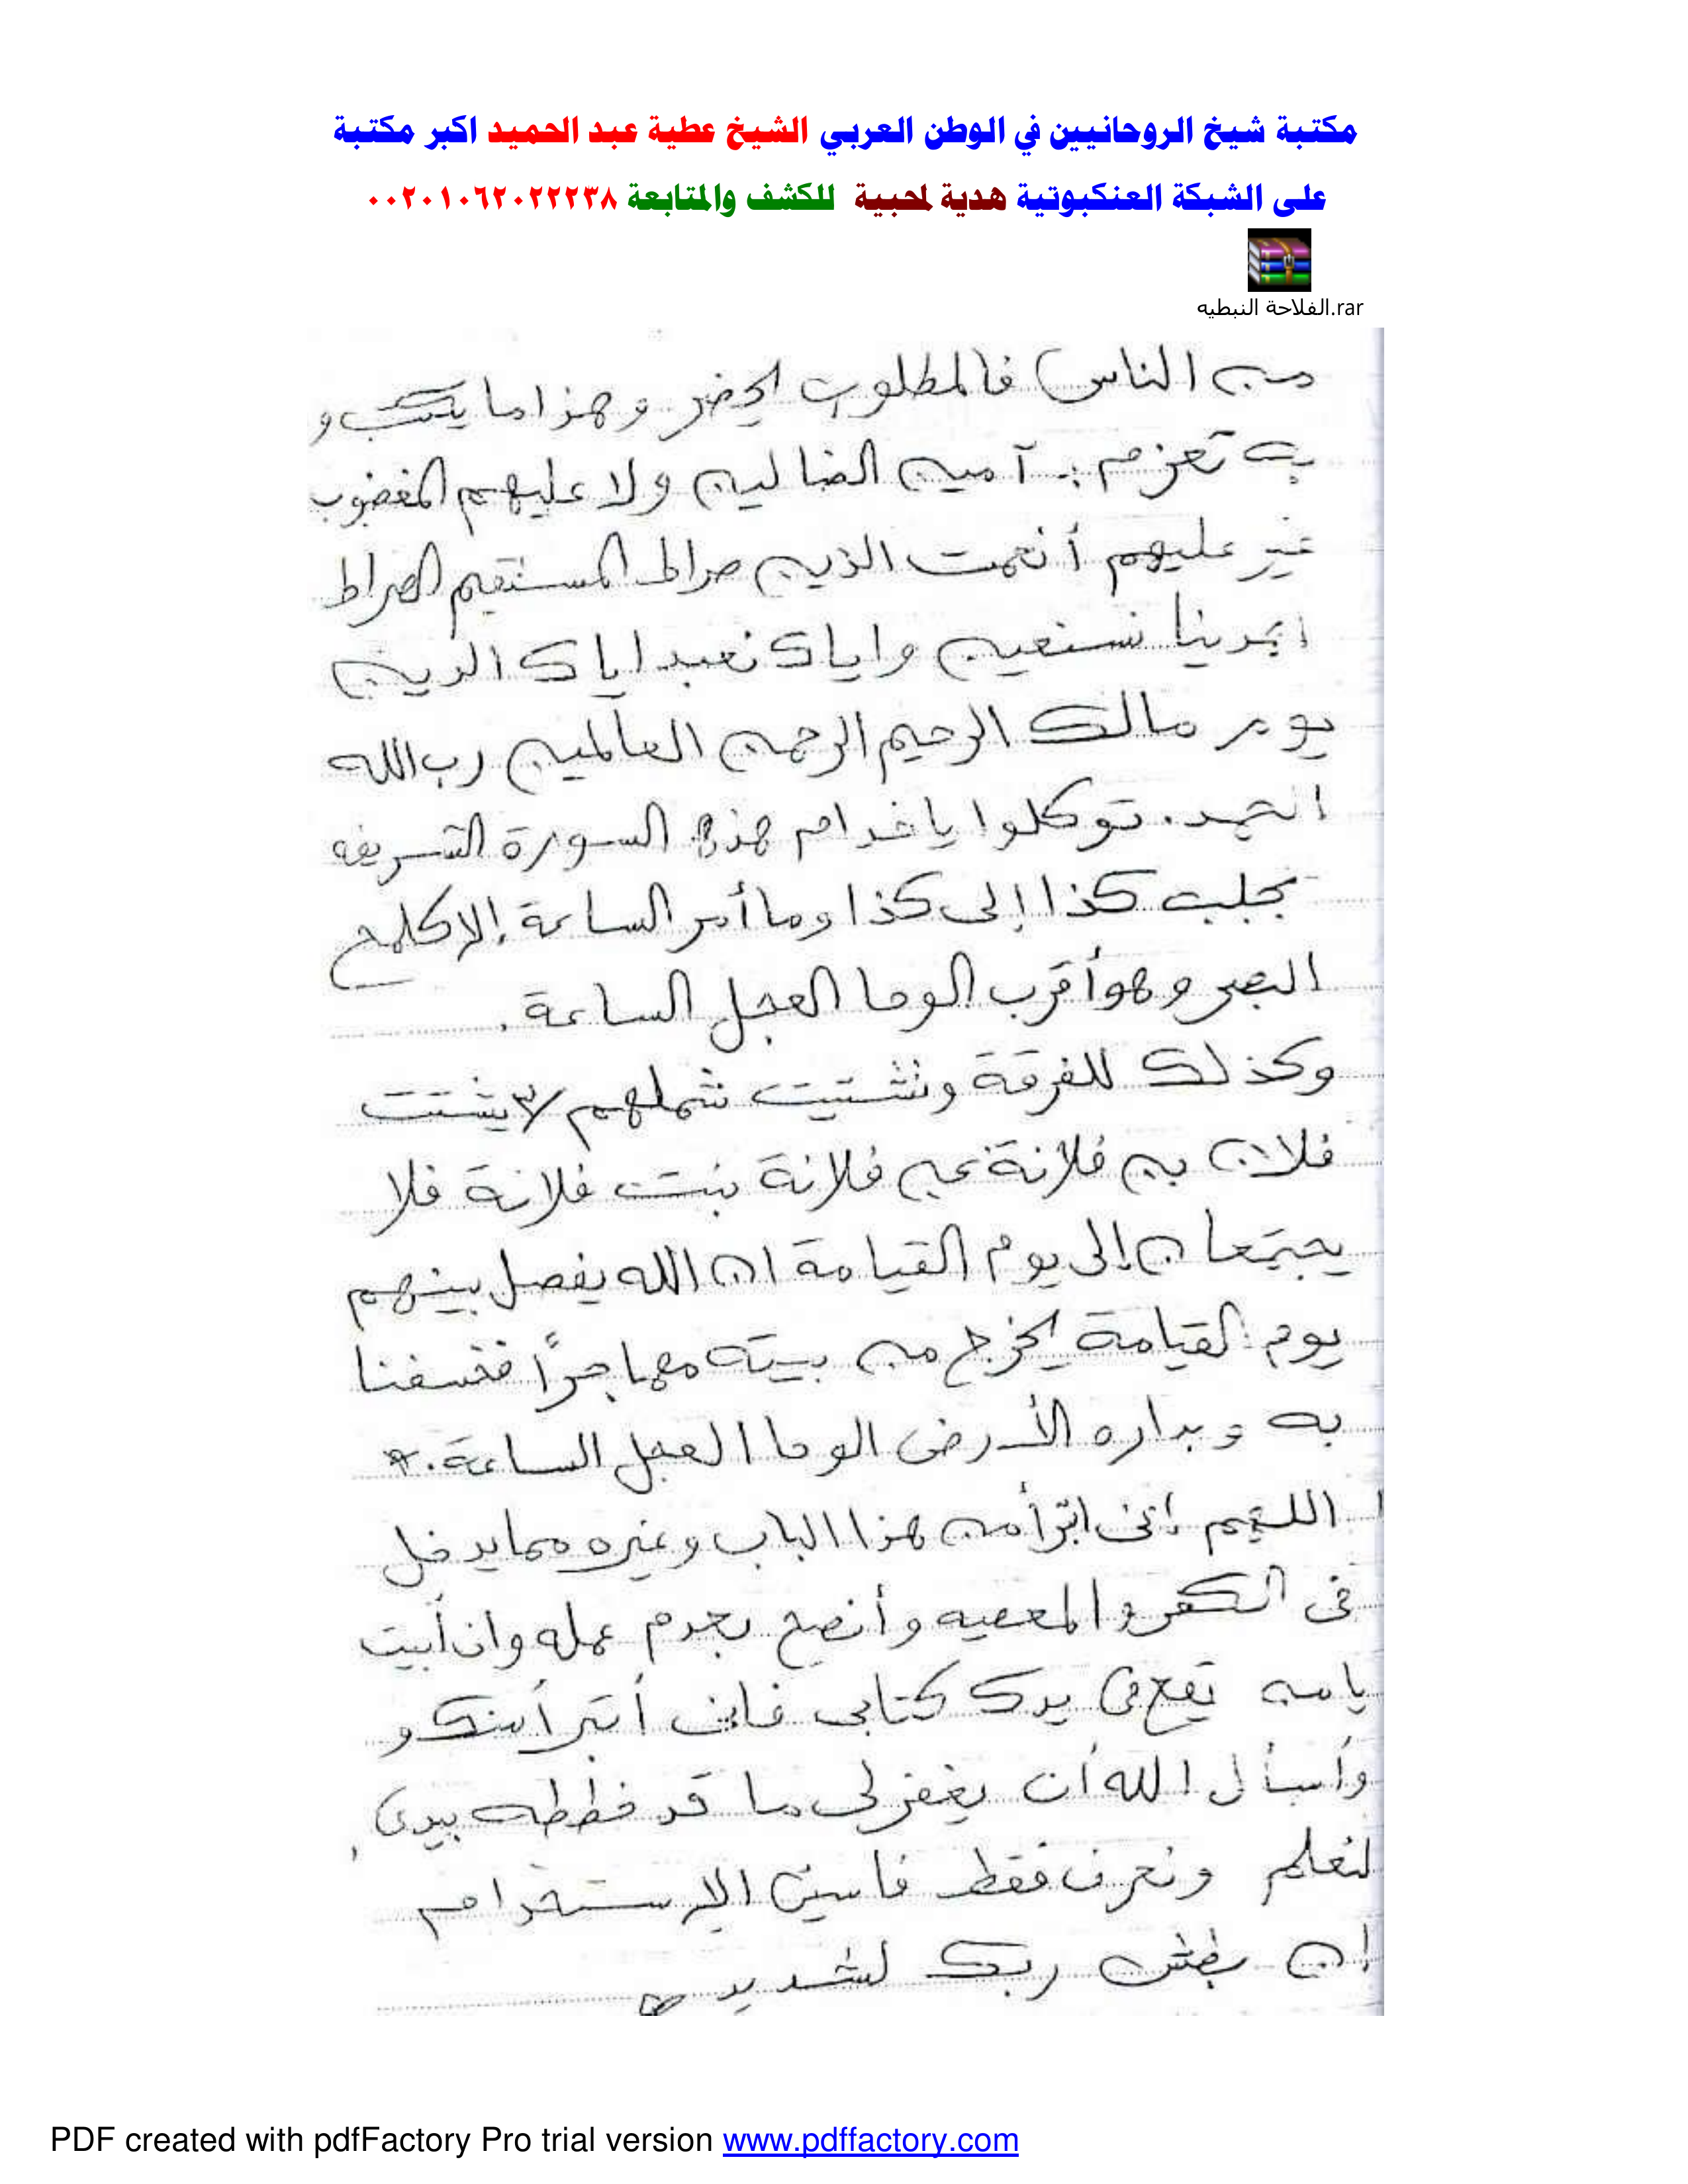 مكتبة شيخ الروحانيين في الوطن العربي الشيخ عطية عبد الحميد اكبر مكتبة
على الشبكة العنكبوتية هدية لمحبية للكشف والمتابعة ٠٠٢٠١٠٦٢٠٢٢٢٣٨
الفلاحة النبطيه.rar
من الناس) فالمطلوب يحضر وهذا ما يكتب و
به تعزم :. آمين الضالين ولا عليهم المغضوب
غير عليهم أنعمت الذين صراط المستقيم الصراط
اهدينا نستعين واياك نعبد اياك الدين
يوم مالك الرحيم الرحمن العالمين رب الله
الحمد. توكلوا ياخدام هذه السورة الشريفه
بجلب كذا إلى كذا وما أمر الساعة إلا كلمح
البصر وهو أقرب الوحا العجل الساعة.
وكذلك للفرقة وتشتيت شملهم يشتت
فلان بن فلانة عن فلانة بنت فلانة فلا
يجتمعان إلى يوم القيامة ان الله يفصل بينهم
يوم القيامة يخرج من بيته مهاجرًا فخسفنا
به وبداره الأرض الوحا العجل الساعة.
اللهم إنى اتبرأ من هذا الباب وغيره مما يدخل
فى الكفر والمعصيه وأنصح بعدم عمله وان أبيت
يا من تقع فى يدك كتابى فإنى أتبرأ منك و
وأسأل الله أن يغفر لى ما قد خططه بيدى
لنعلم ونعرف فقط فاسئ الإستخدام
إن بطش ربك لشديد
PDF created with pdfFactory Pro trial version www.pdffactory.com